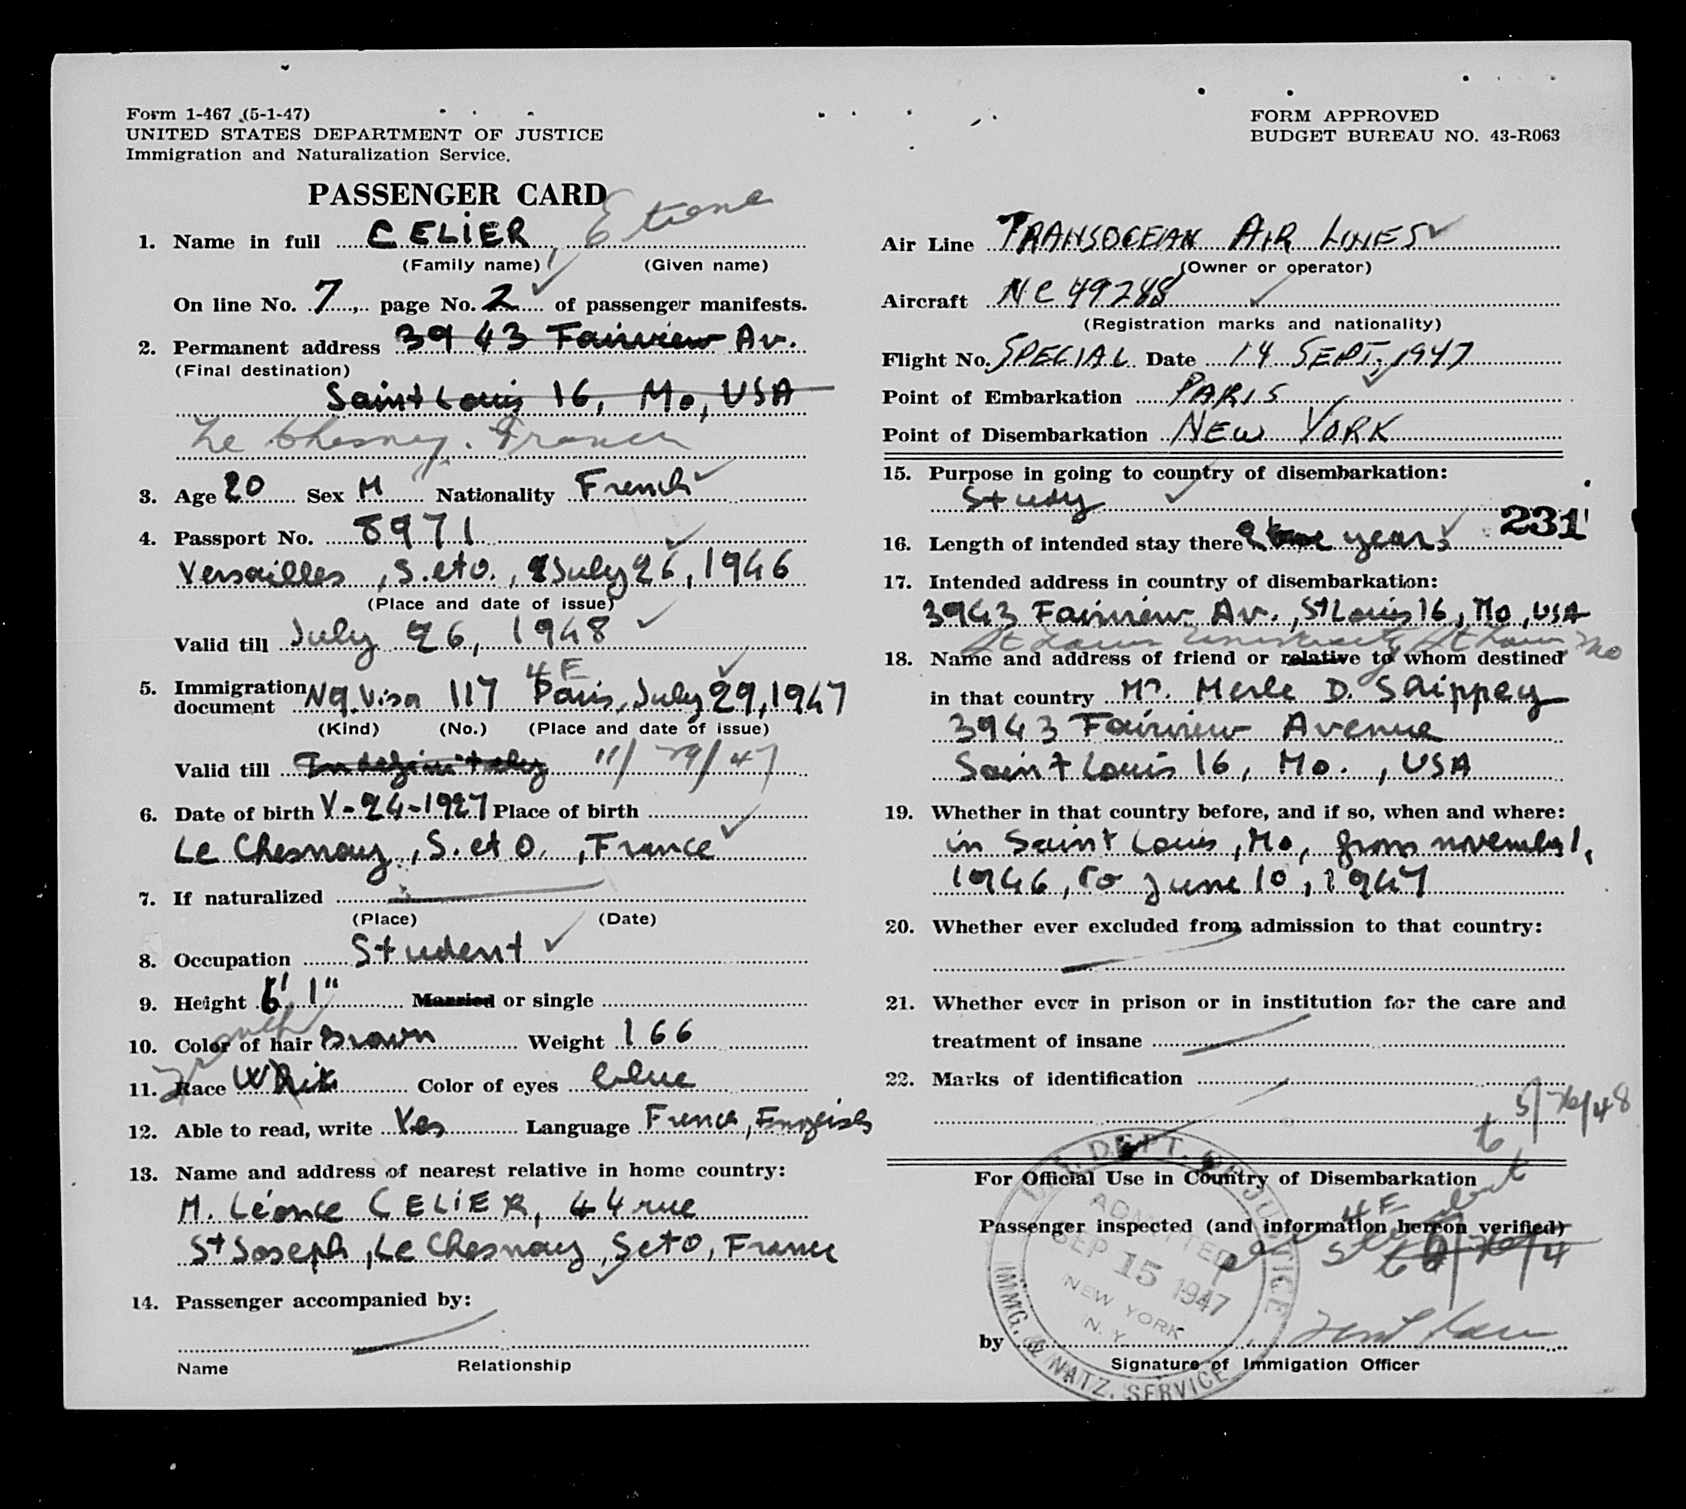 Form 1-467 (5-1-47)
UNITED STATES DEPARTMENT OF JUSTICE
Immigration and Naturalization Service.
PASSENGER CARD
1. Name in full CELIER, Etiene
(Family name) (Given name)
On line No. 7 page No. 2 of passenger manifests.
2. Permanent address 3943 Fairview Av.
(Final destination)
Saint Louis 16, Mo, USA
Le Chesnay. France
3. Age 20 Sex M Nationality French
4. Passport No. 8971
Versailles, S. et O., July 26, 1946
(Place and date of issue)
Valid till July 26, 1948
4E
5. Immigration document Nq. Visa 117 Paris, July 29, 1947
(Kind) (No.) (Place and date of issue)
Valid till Indefinitely 11/29/47
6. Date of birth V-24-1927 Place of birth
Le Chesnay, S. et O., France
7. If naturalized
(Place) (Date)
8. Occupation Student
9. Height 6' 1" Married or single
10. Color of hair Brown Weight 166
French
11. Race White Color of eyes blue
12. Able to read, write Yes Language French, English
13. Name and address of nearest relative in home country:
M. Léonce CELIER, 44 rue
St Joseph, Le Chesnay, S et O, France
14. Passenger accompanied by:
Name Relationship
FORM APPROVED
BUDGET BUREAU NO. 43-R063
Air Line TRANSOCEAN AIR LINES
(Owner or operator)
Aircraft NC 49288
(Registration marks and nationality)
Flight No. SPECIAL Date 14 SEPT. 1947
Point of Embarkation PARIS
Point of Disembarkation NEW YORK
15. Purpose in going to country of disembarkation:
Study
231
16. Length of intended stay there years
17. Intended address in country of disembarkation:
3943 Fairview Av., St Louis 16, Mo, USA
St Louis University St Louis Mo
18. Name and address of friend or relative to whom destined
in that country Mr. Merle D. Shippey
3943 Fairview Avenue
Saint Louis 16, Mo., USA
19. Whether in that country before, and if so, when and where:
in Saint Louis, Mo, from november 1,
1946, to june 10, 1947
20. Whether ever excluded from admission to that country:
21. Whether ever in prison or in institution for the care and
treatment of insane
22. Marks of identification
to 5/26/48
For Official Use in Country of Disembarkation
4E
Passenger inspected (and information hereon verified)
U.S. DEPT. OF JUSTICE
ADMITTED
SEP 15 1947
NEW YORK
N. Y.
IMMG. & NATZ. SERVICE
by
Signature of Immigation Officer